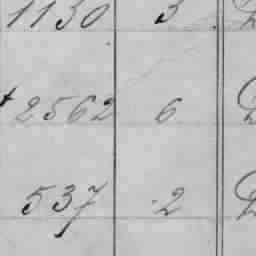 1130 3
2562 6
537 2